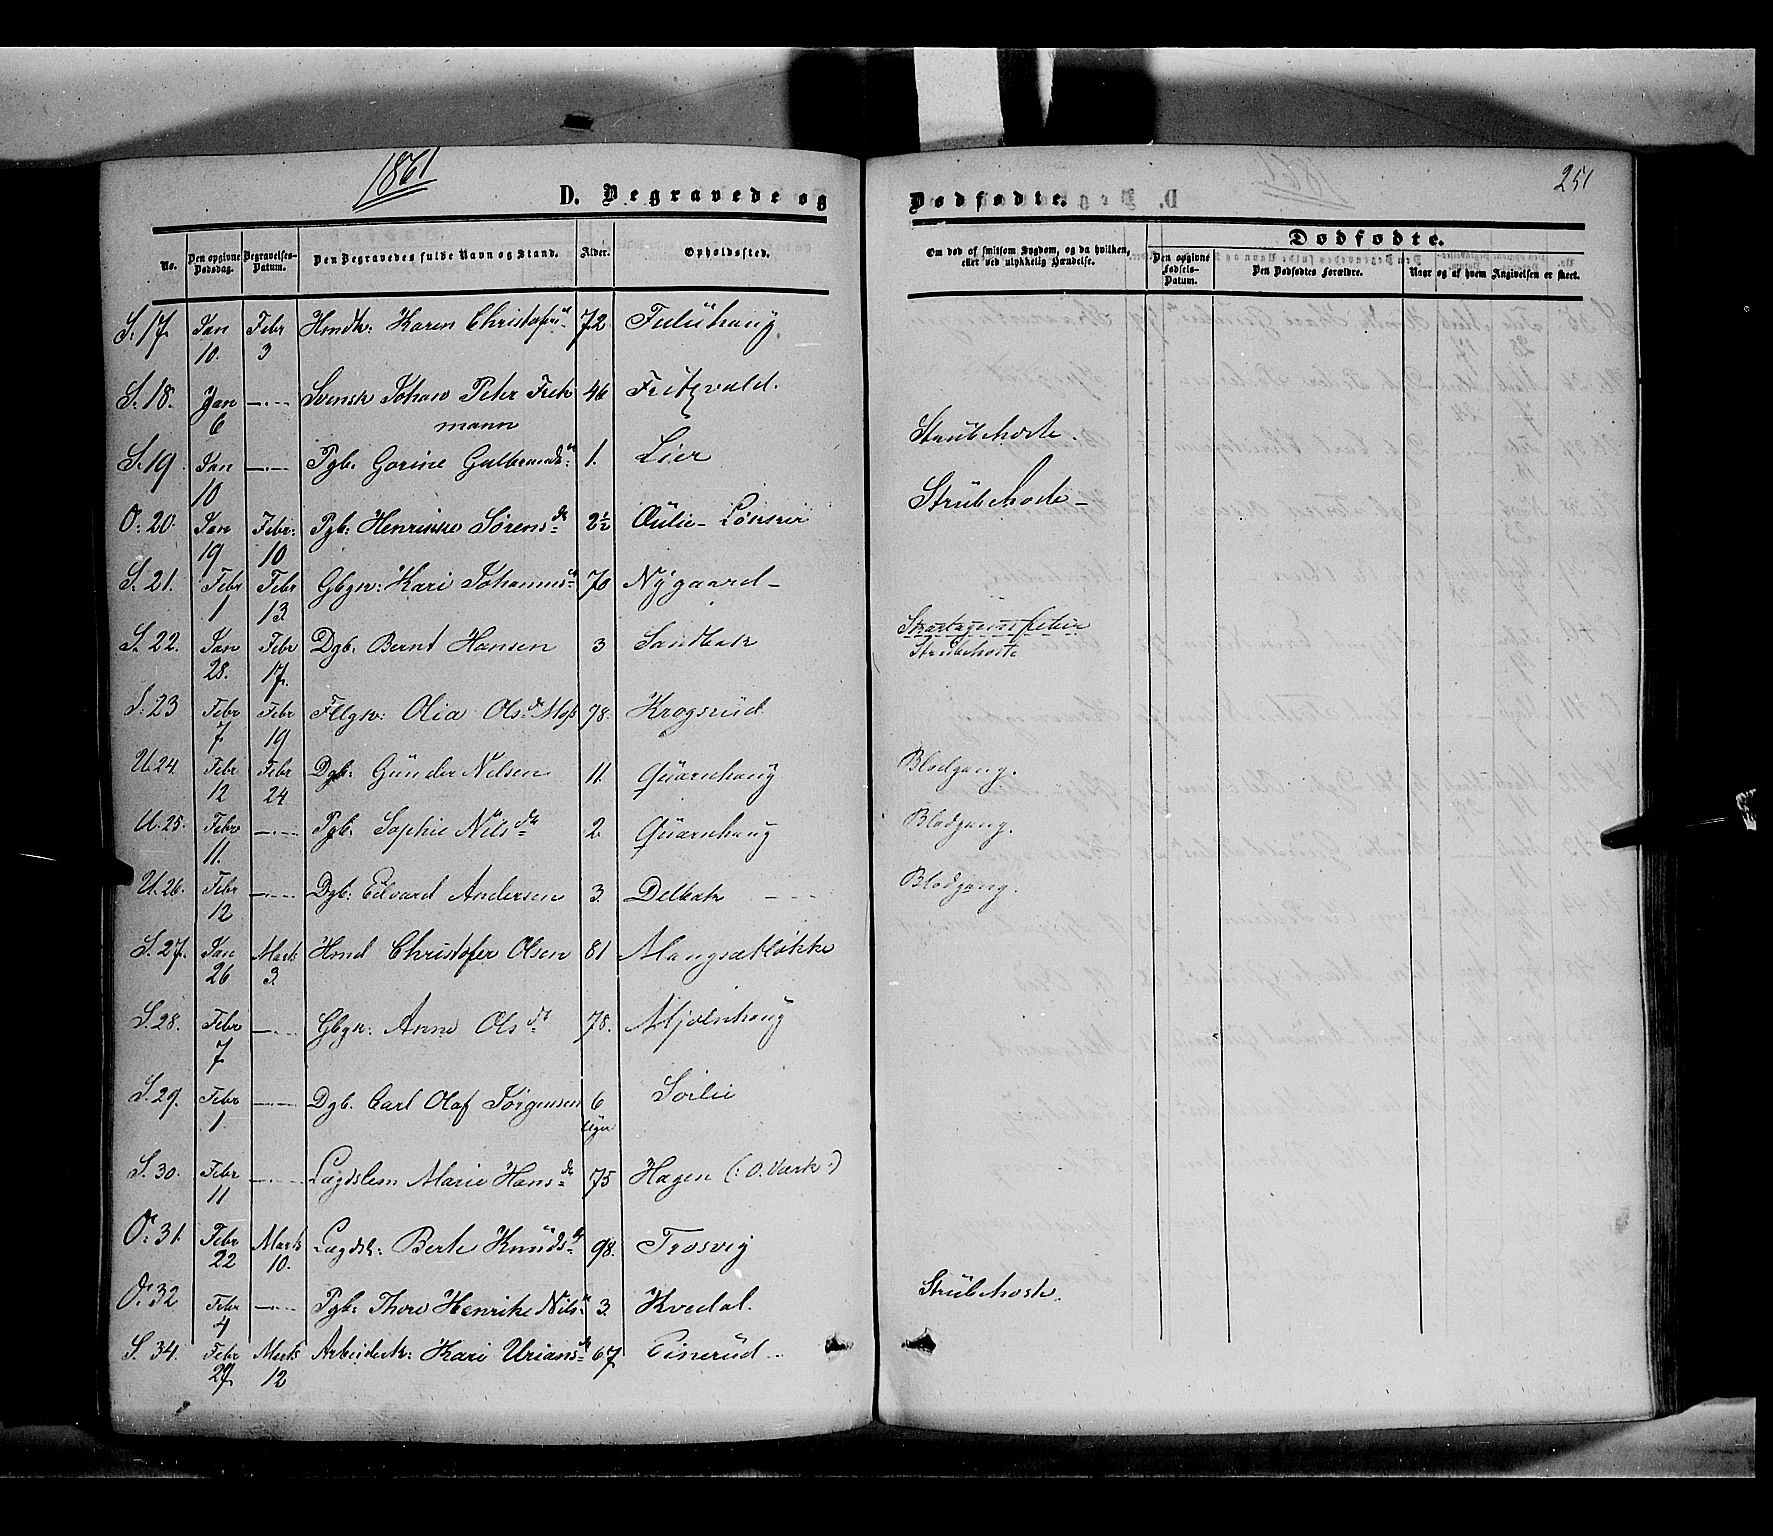 1861
251
D. Begravede og
Dødfødte.
No. Den opgivne Dødsdag. Begravelses-Datum. Den Begravedes fulde Navn og Stand. Alder. Opholdssted.
Om død af smitsom Sygdom, og da hvilken, eller ved ulykkelig Hændelse.
Dødfødte.
Den opgivne Fødsels-Datum. Den Dødfødtes Forældre. Naar og af hvem Angivelsen er skeet.
S. 17. Jan 10. Febr 3 Hmdk: Karen Christofersd 72
S. 18. Jan 6 —.— Svensk Johan Peter Frek 46 Fritzvald.
mann
S. 19. Jan 10 —.— Pgb. Gorine Gulbrandsd 1. Lier Strubehoste.
O. 20. Jan 19 Febr: 10 Pgb: Henrikke Sørensd 2½ Strubehoste —
S. 21. Febr 1 Febr 13 Gbgk: Kari Johannesd 70 Nygaard —
S. 22. Jan 28. Febr 17. Dgb. Bernt Hansen 3 Sandbak Skarlagensfeber
Strubehoste
S. 23 Febr 7 Febr 19 Olia Olsdr Moss 78. Krogsrud
U. 24. Febr 12 Febr 24 Dgb: Gunder Nilsen 11. Quarnhaug Blodgang.
U. 25. Febr 11. —.— Pgb. Sophie Nilsdr 2. Quarnhaug Blodgang.
U. 26. Febr 12 —.— Dgb: Edvard Andersen 3. Delbak Blodgang.
S. 27. Jan 26 Marts 3. Hmd Christofer Olsen 81 Mangsetløkke
S. 28. Febr 7 —.— Gbgk: Anne Olsdr 78. Mjølnhaug
S. 29. Febr 1. —.— Dgb. Carl Olaf Jørgensen 6 Uger Sørlie
S. 30. Febr 11 —.— Lægdslem Marie Hansdr 75 Hagen (: O. Værk :)
O. 31. Febr 22 Marts 10. Lægdsl: Berte Knudsd 98. Trosvig
O. 32 Febr 4 —.— Pgb: Thore Henrike Nilsd 3. Kvedal. Strubehoste.
S. 34. Febr 27 Marts 12 Arbeiderk: Kari Uriansdr 67 Einerud